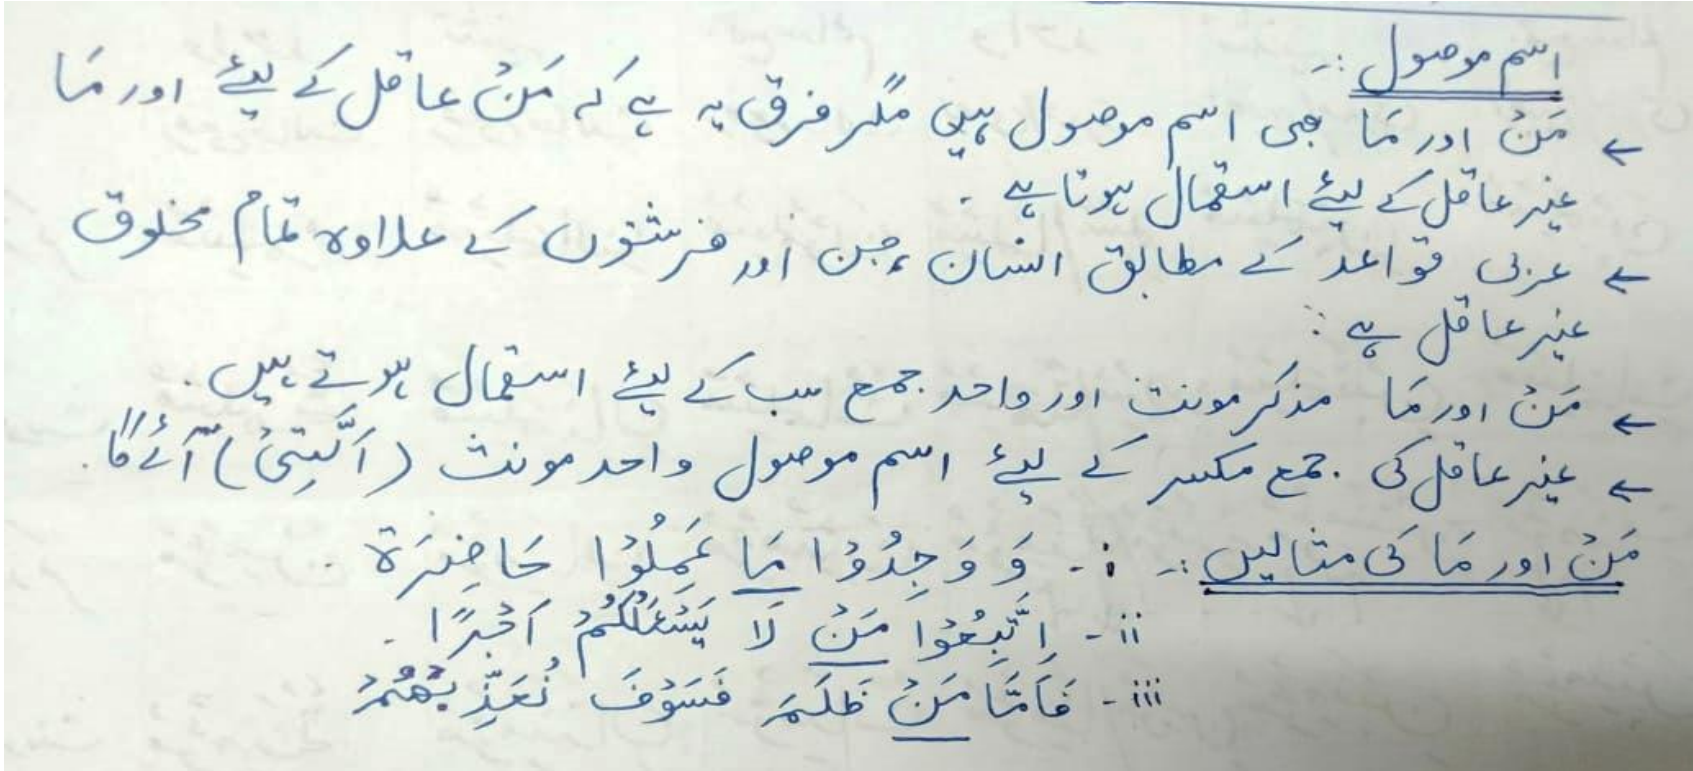 اسم موصول :-
← مَنْ اور مَا بھی اسم موصول ہیں مگر فرق یہ ہے کہ مَنْ عاقل کے لیئے اور مَا
غیر عاقل کے لیئے استعمال ہوتا ہے -
← عربی قواعد کے مطابق انسان ، جن اور فرشتوں کے علاوہ تمام مخلوق
غیر عاقل ہے :
← مَنْ اور مَا مذکر مونث اور واحد جمع سب کے لیئے استعمال ہوتے ہیں -
← غیر عاقل کی جمع مکسر کے لیئے اسم موصول واحد مونث (اَلَّتِیْ) آئے گا -
مَنْ اور مَا کی مثالیں :- i - وَ وَجِدُوْا مَا عَمِلُوْا حَاضِرَة -
ii - اِتَّبِعُوْا مَنْ لَا يَسْئَلُكُمْ اَجْرًا -
iii - فَاَمَّا مَنْ ظَلَمَ فَسَوْفَ نُعَذِّبُهُمْ